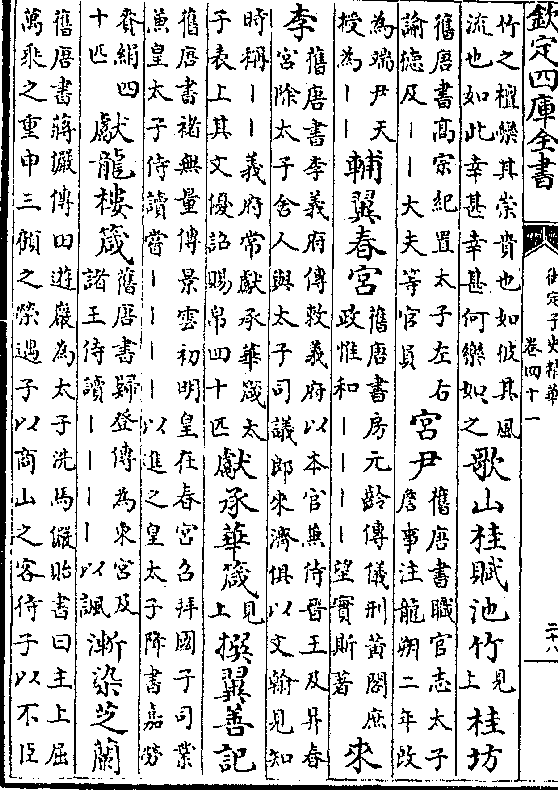 欽定四庫全書
御定子史精華
卷四十一
竹之檀欒其崇貴也如彼其風
流也如此幸甚幸甚何樂如之
歌山桂賦池竹
見上
桂坊
舊唐書高宗紀置太子左右
諭德及丨丨大夫等官員
宮尹
舊唐書職官志太子
詹事注龍朔二年改
為端尹天
授為丨丨
輔翼春宮
舊唐書房元齡傳儀刑黃閣庶
政惟和丨丨丨丨望實斯著
來
李
舊唐書李義府傳敕義府以本官兼侍晉王及昇春
宮除太子舍人與太子司議郎來濟俱以文翰見知
時稱丨丨義府常獻承華箴太
子表上其文優詔賜帛四十匹
獻承華箴
見上
撰翼善記
舊唐書褚無量傳景雲初明皇在春宮召拜國子司業
兼皇太子侍讀嘗丨丨丨丨以進之皇太子降書嘉勞
賚絹四
十匹
獻龍樓箴
舊唐書歸登傳為東宮及
諸王侍讀丨丨丨丨以諷
漸染芝蘭
舊唐書蔣儼傳田遊巖為太子洗馬儼貽書曰主上屈
萬乘之重申三顧之榮遇子以商山之客待子以不臣